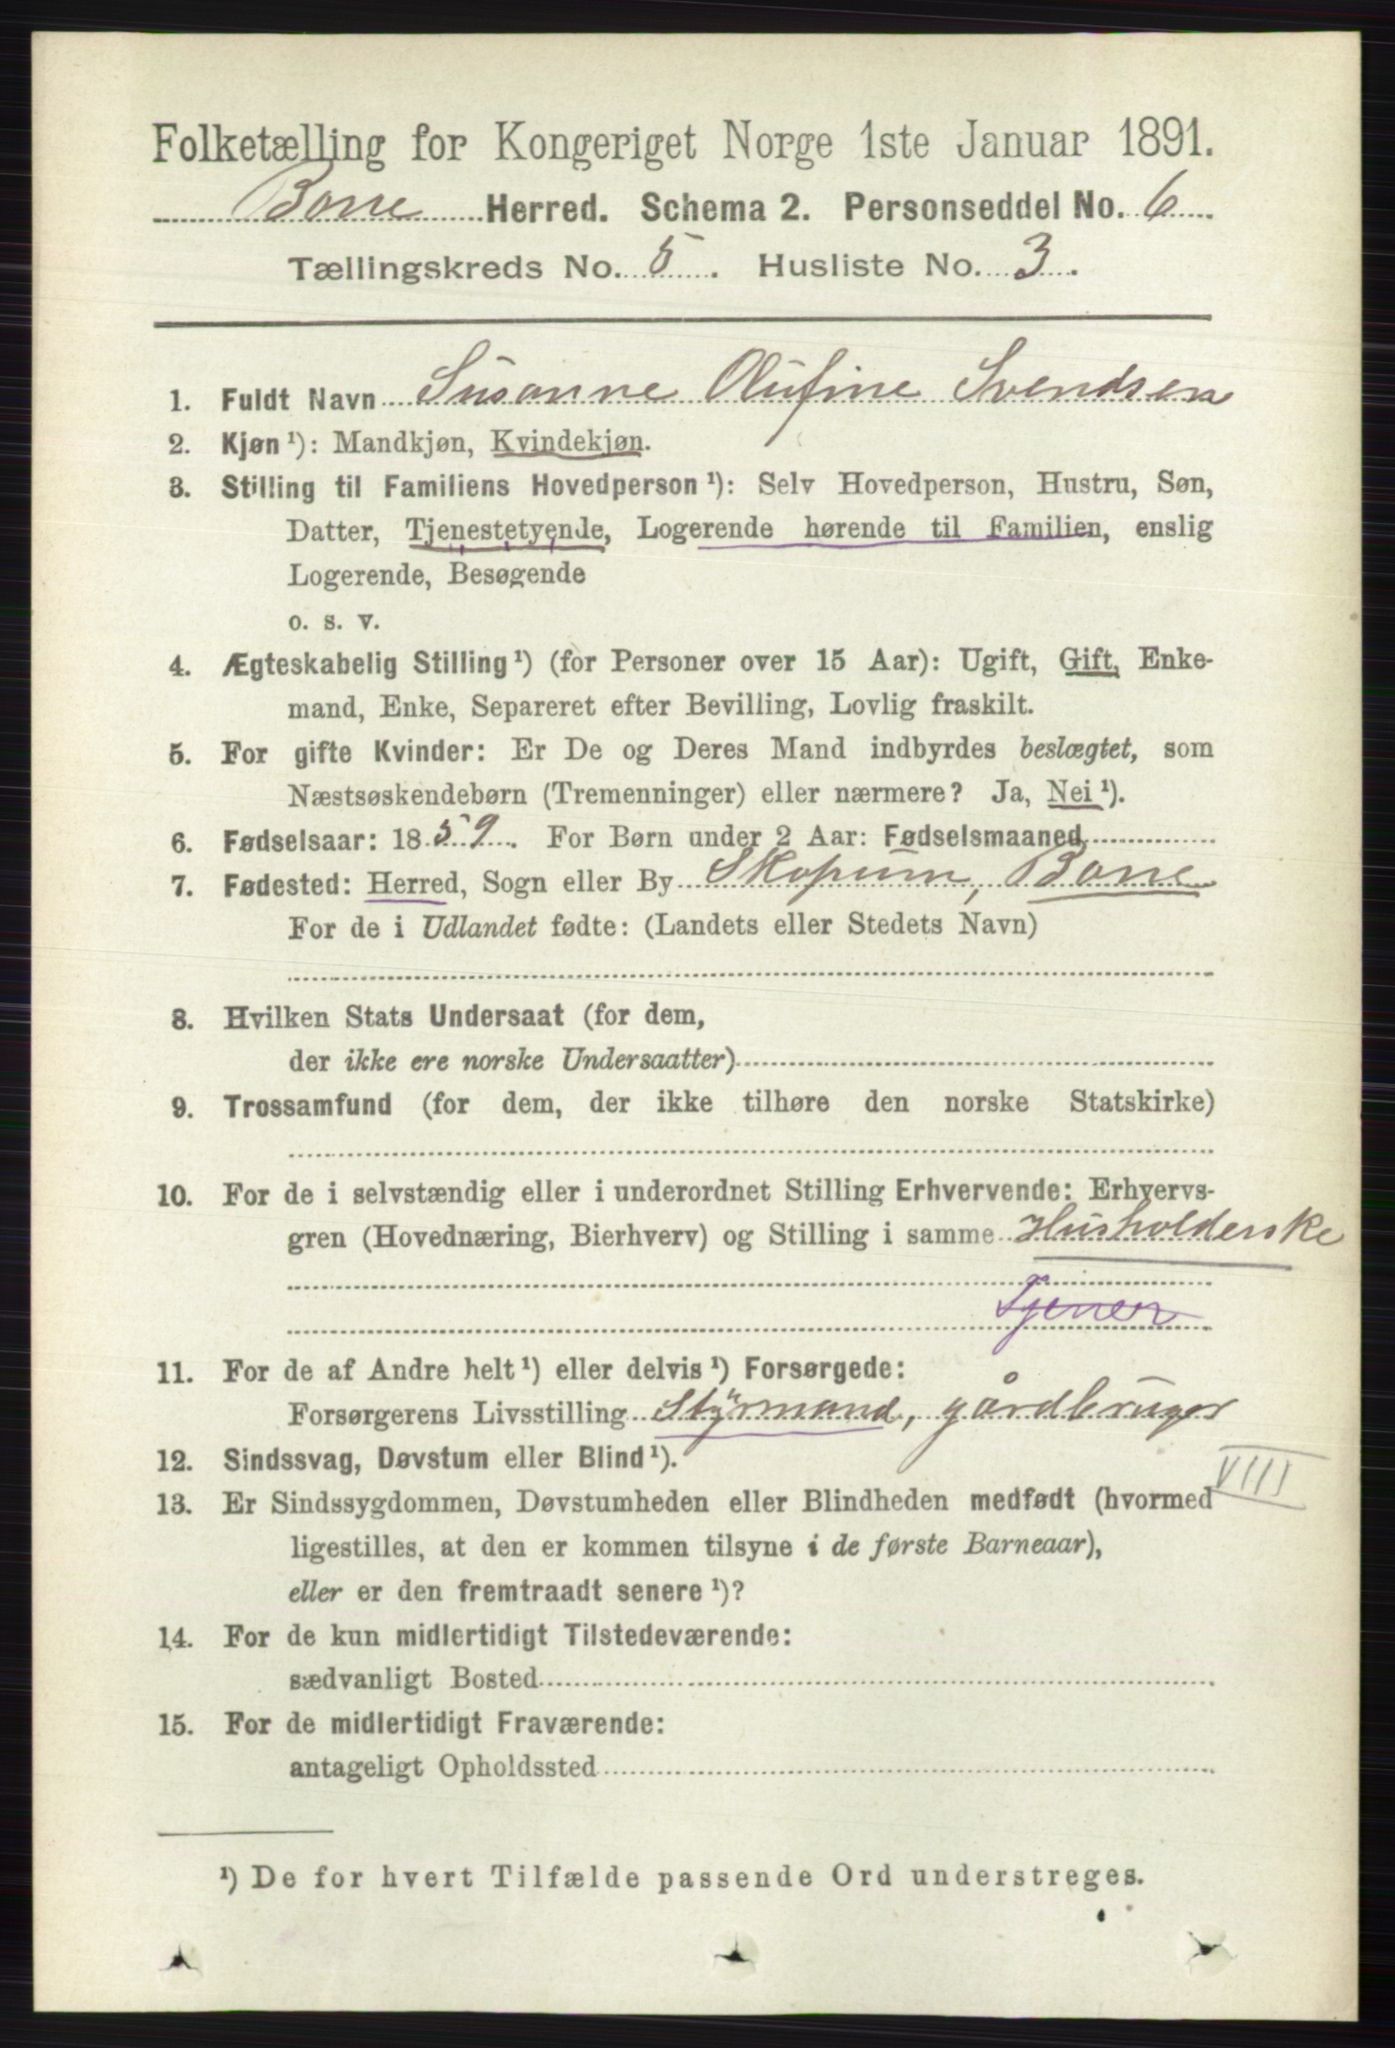 Folketælling for Kongeriget Norge 1ste Januar 1891.
Borre Herred. Schema 2. Personseddel No. 6
Tællingskreds No. 5. Husliste No. 3.
1. Fuldt Navn Susanne Olufine Svendsen
2. Kjøn ¹): Mandkjøn, Kvindekjøn.
3. Stilling til Familiens Hovedperson ¹): Selv Hovedperson, Hustru, Søn,
Datter, Tjenestetyende, Logerende hørende til Familien, enslig
Logerende, Besøgende
o. s. v.
4. Ægteskabelig Stilling ¹) (for Personer over 15 Aar): Ugift, Gift, Enke-
mand, Enke, Separeret efter Bevilling, Lovlig fraskilt.
5. For gifte Kvinder: Er De og Deres Mand indbyrdes beslægtet, som
Næstsøskendebørn (Tremenninger) eller nærmere? Ja, Nei ¹).
6. Fødselsaar: 1859. For Børn under 2 Aar: Fødselsmaaned
7. Fødested: Herred, Sogn eller By Skopum, Borre
For de i Udlandet fødte: (Landets eller Stedets Navn)
8. Hvilken Stats Undersaat (for dem,
der ikke ere norske Undersaatter)
9. Trossamfund (for dem, der ikke tilhøre den norske Statskirke)
10. For de i selvstændig eller i underordnet Stilling Erhvervende: Erhvervs-
gren (Hovednæring, Bierhverv) og Stilling i samme Husholderske
Tjener
11. For de af Andre helt ¹) eller delvis ¹) Forsørgede:
Forsørgerens Livsstilling Styrmand, gårdbruger
12. Sindssvag, Døvstum eller Blind ¹).
VIII
13. Er Sindssygdommen, Døvstumheden eller Blindheden medfødt (hvormed
ligestilles, at den er kommen tilsyne i de første Barneaar),
eller er den fremtraadt senere ¹)?
14. For de kun midlertidigt Tilstedeværende:
sædvanligt Bosted
15. For de midlertidigt Fraværende:
antageligt Opholdssted
¹) De for hvert Tilfælde passende Ord understreges.